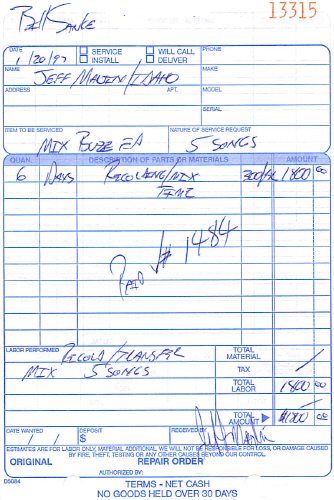 13315
Bill Sanke
DATE
1/20/97
SERVICE
INSTALL
WILL CALL
DELIVER
PHONE
NAME
JEFF MARTIN/IDAHO
MAKE
ADDRESS
APT.
MODEL
SERIAL
ITEM TO BE SERVICED
MIX BUZZ EP
NATURE OF SERVICE REQUEST
5 SONGS
QUAN. DESCRIPTION OF PARTS OR MATERIALS AMOUNT
6 DAYS RECORDING/MIX 300/DAY 1800 00
TIME
PAID √# 1484
LABOR PERFORMED
RECORD/TRANSFER
MIX 5 SONGS
TOTAL MATERIAL
TAX
TOTAL LABOR 1800 00
TOTAL AMOUNT $1800 00
DATE WANTED
/ /
DEPOSIT
$
RECEIVED BY
ESTIMATES ARE FOR LABOR ONLY, MATERIAL ADDITIONAL. WE WILL NOT BE RESPONSIBLE FOR LOSS, OR DAMAGE CAUSED
BY FIRE, THEFT, TESTING OR ANY OTHER CAUSES BEYOND OUR CONTROL.
ORIGINAL REPAIR ORDER
AUTHORIZED BY:
D5084
TERMS - NET CASH
NO GOODS HELD OVER 30 DAYS